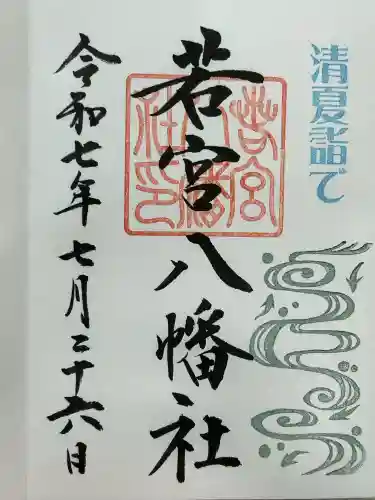 清夏詣で
若宮八幡社
若宮八幡社印
令和七年七月二十六日